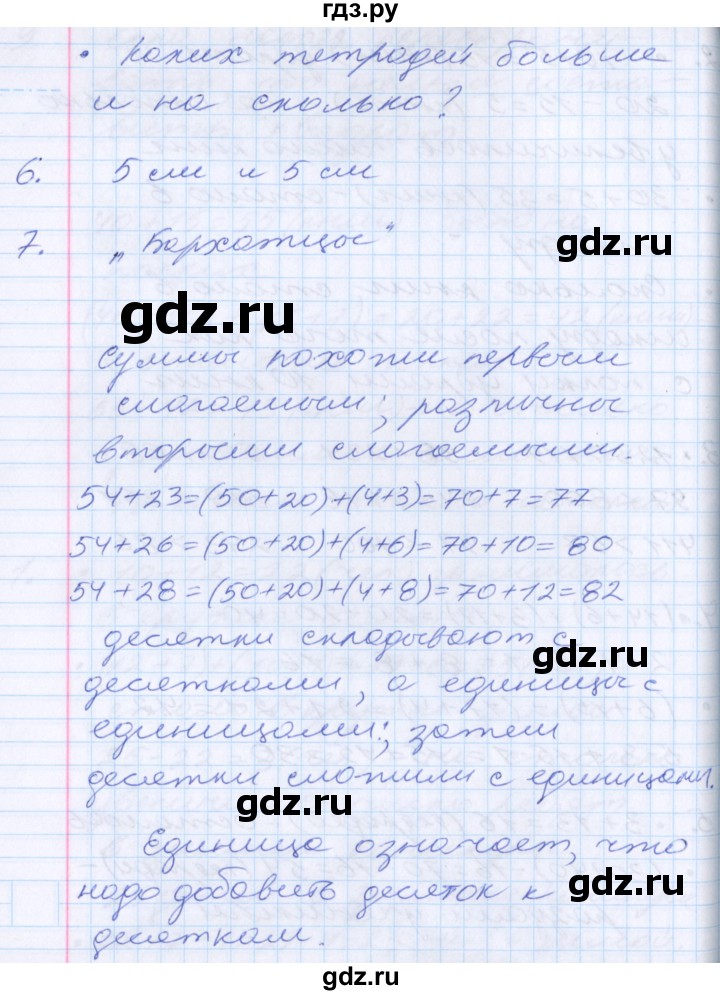 гдз.ру
• Каких тетрадей больше
и на сколько?
6. 5 см и 5 см
7. „Бархатцы"
gdz.ru
gdz.ru
Суммы похожи первым
слагаемым; различны
вторыми слагаемыми.
54+23=(50+20)+(4+3)=70+7=77
54+26=(50+20)+(4+6)=70+10=80
54+28=(50+20)+(4+8)=70+12=82
десятки складывают с
gdz.ru
десятками, а единицы с
единицами; затем
десятки сложили с единицами.
gdz.ru
Единица означает, что
gdz.ru
надо добавить десяток к
десяткам.
gdz.ru